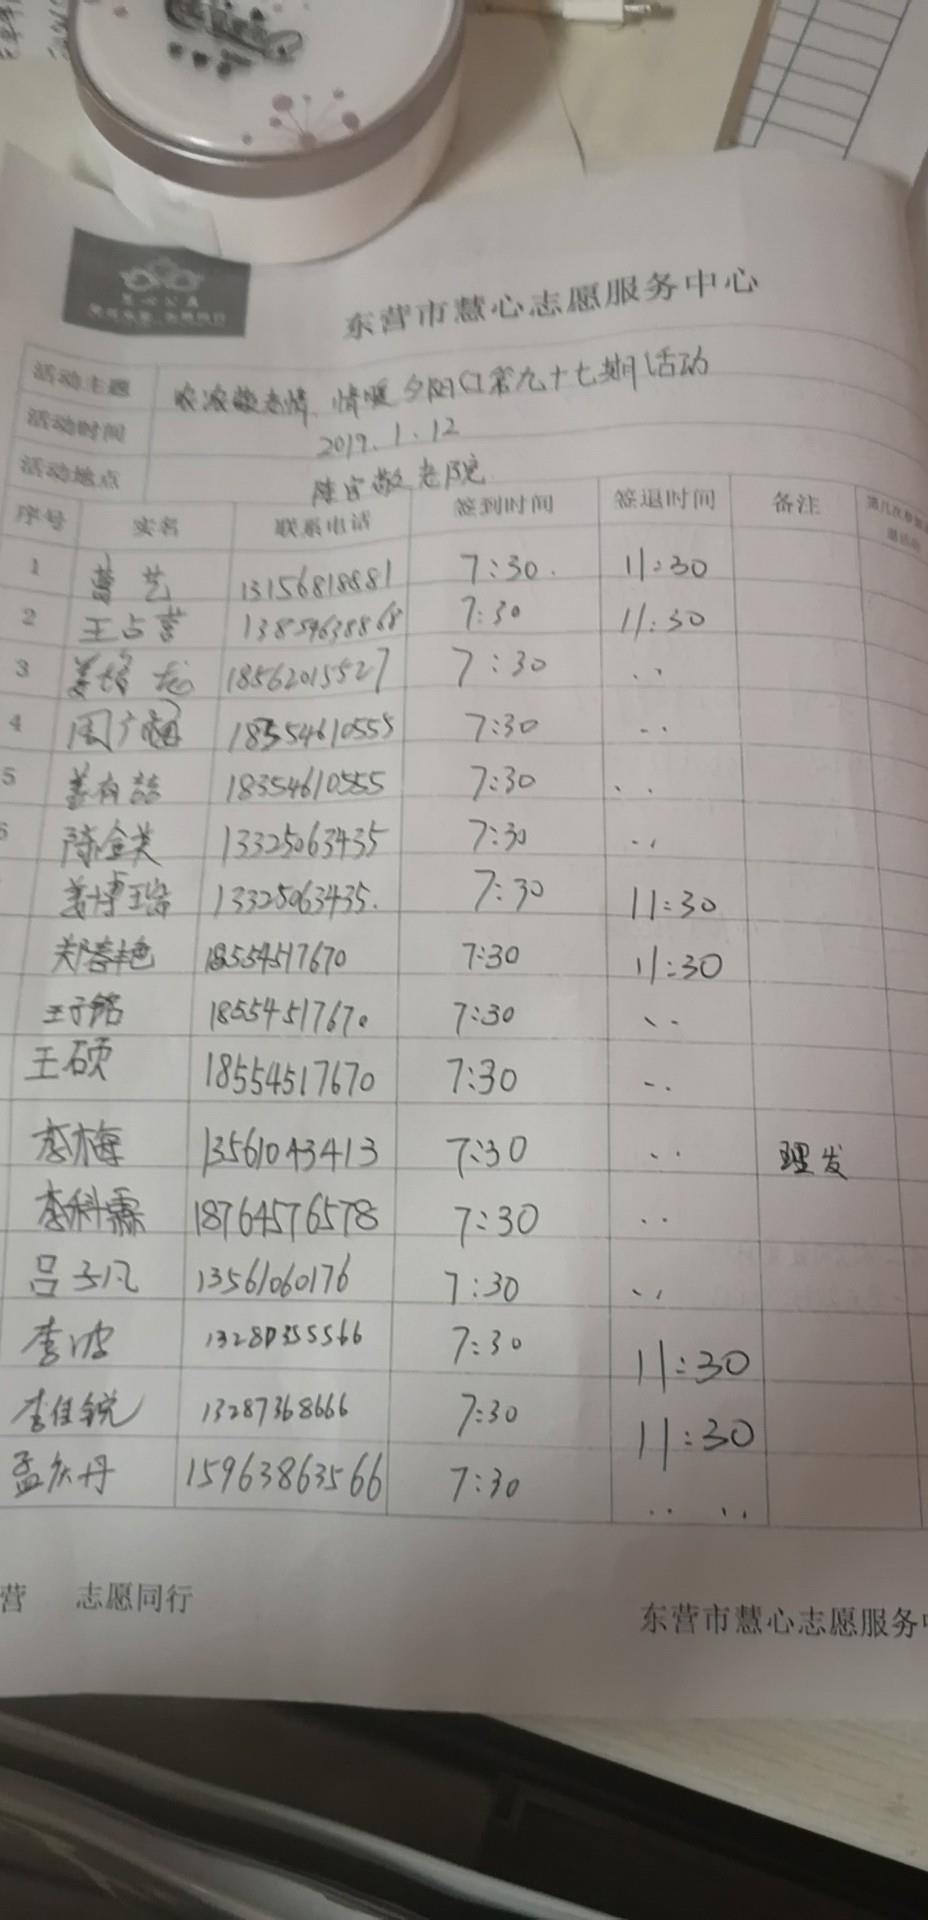 东营市慧心志愿服务中心
活动主题 浓浓敬老情 情暖夕阳红第九十七期活动
活动时间 2019.1.12
活动地点 敬老院
序号 实名 联系电话 签到时间 签退时间 备注
1 艺 13156818881 7:30 11:30
2 王占营 7:30 11:30
3 姜 龙 18562015527 7:30 ..
4 周广 18354610555 7:30 ..
5 姜有喆 18354610555 7:30 ..
陈金英 13325063435 7:30 ..
姜博瑶 13325063435. 7:30 11:30
郑春艳 18554517670 7:30 11:30
王子铭 18554517670 7:30 ..
王硕 18554517670 7:30 ..
李梅 13561043413 7:30 .. 理发
李科霖 18764576578 7:30 ..
吕子凡 13561060176 7:30 ..
李波 7:30 11:30
李佳锐 13287368666 7:30 11:30
孟庆丹 15963863566 7:30 .. ..
营 志愿同行
东营市慧心志愿服务